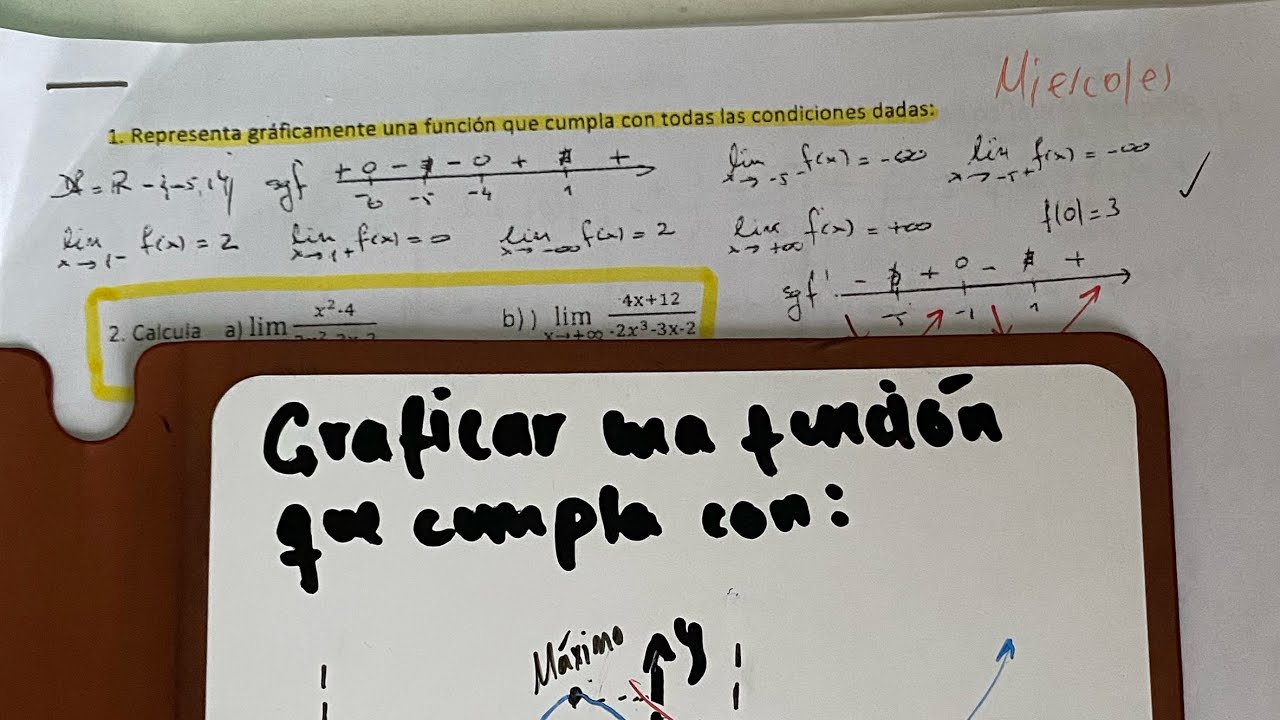 Miercoles
1. Representa gráficamente una función que cumpla con todas las condiciones dadas:
Df = R - {-5, 1} sgf + 0 - ∄ - 0 + ∄ + lim f(x) = -∞ lim f(x) = -∞
-6 -5 -4 1 x→-5⁻ x→-5⁺
lim f(x) = 2 lim f(x) = lim f(x) = 2 lim f(x) = +∞ f(0) = 3
x→1⁻ x→1⁺ x→-∞ x→+∞
sgf' - ∄ + 0 - ∄ +
-5 -1 1
2. Calcula a) lim x²-4 b) ) lim 4x+12
x→+∞ -2x³-3x-2
Graficar una función
que cumpla con:
Máximo y